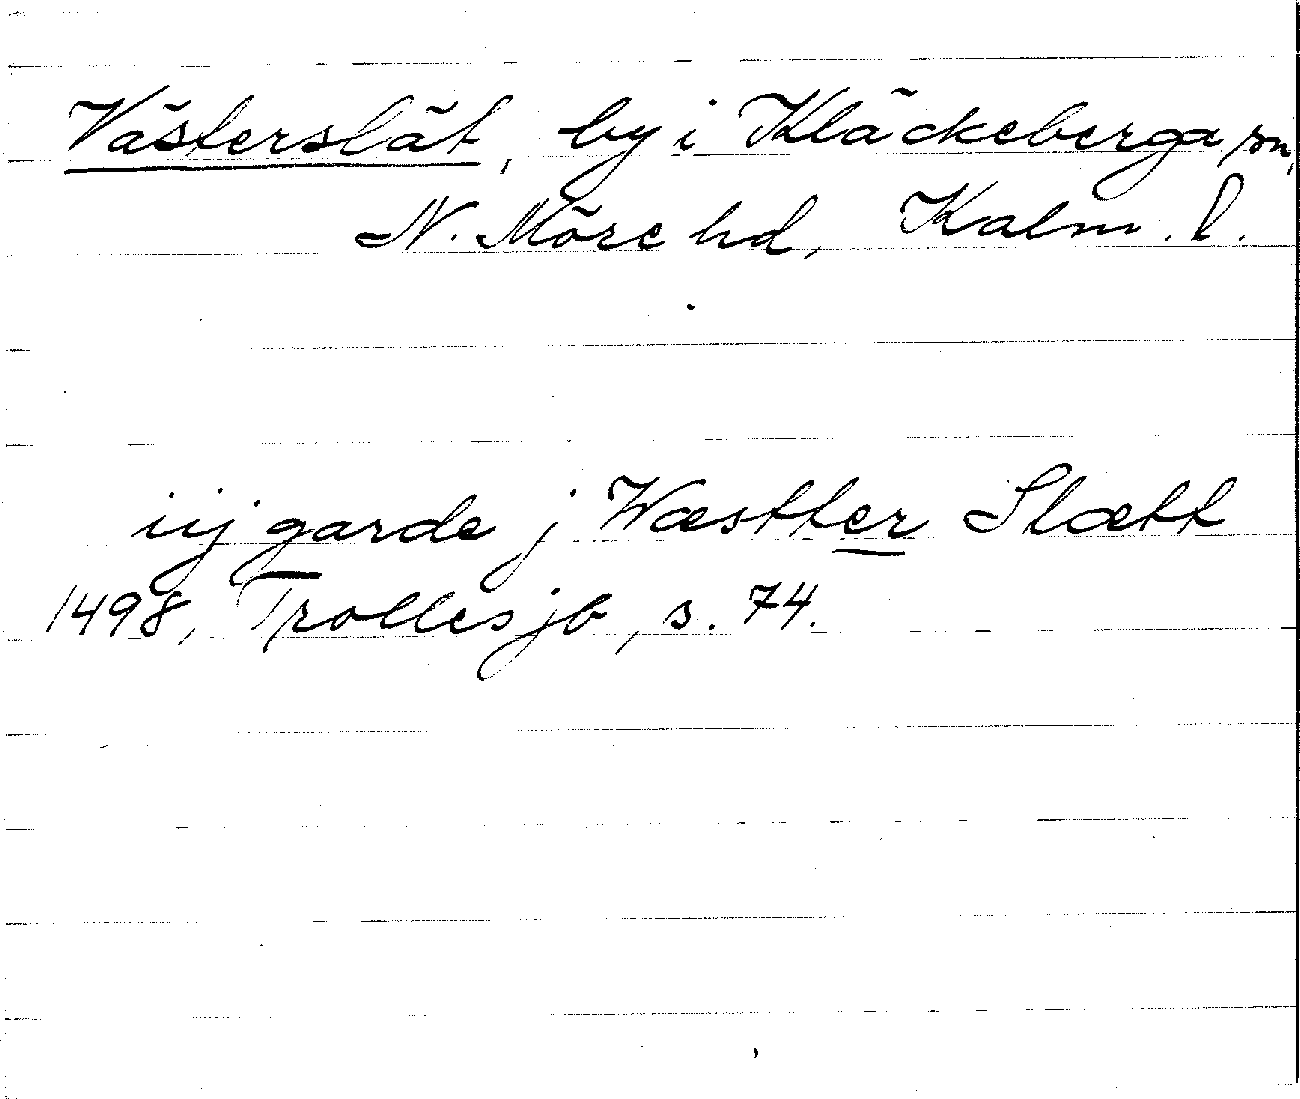 Västerslät, by i Kläckeberga sn,
N. Möre hd, Kalm. l.
iij garde j Wæstter Slætt
1498, Trolles jb, s. 74.